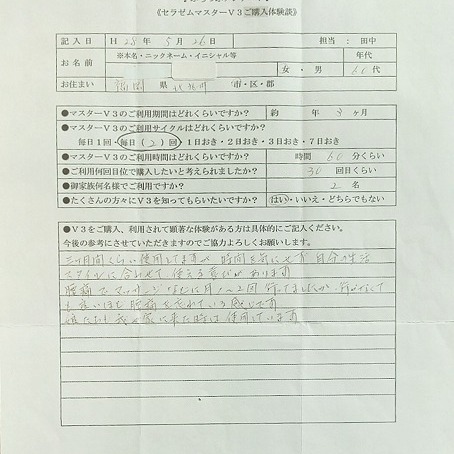 《セラゼムマスターV3ご購入体験談》
記入日 H 28年 5月 26日 担当：田中
お名前 ※本名・ニックネーム・イニシャル等 年代
女・男 60代
お住まい 福岡 県 市・区・郡
●マスターV3のご利用期間はどれくらいですか？ 約 年 3ヶ月
●マスターV3のご利用サイクルはどれくらいですか？
毎日1回・毎日(2)回 1日おき・2日おき・3日おき・7日おき
●マスターV3のご利用時間はどれくらいですか？ 時間 60分くらい
●ご利用何回目位で購入したいと考えられましたか？ 30回目くらい
●御家族何名様でご利用ですか？ 2名
●たくさんの方々にV3を知ってもらいたいですか？ はい・いいえ・どちらでもない
●V3をご購入、利用されて顕著な体験がある方は具体的にご記入ください。
今後の参考にさせていただきますのでご協力よろしくお願いします。
三ヶ月間くらい使用してますが 時間を気にせず 自分の生活
スタイルに合わせて 使える喜びが あります
腰痛で マッサージなどに月1〜2回 行ってましたが 行かなくて
も良いほど 腰痛を忘れている 感じです
娘たちも 我が家に来た時は 使用しています